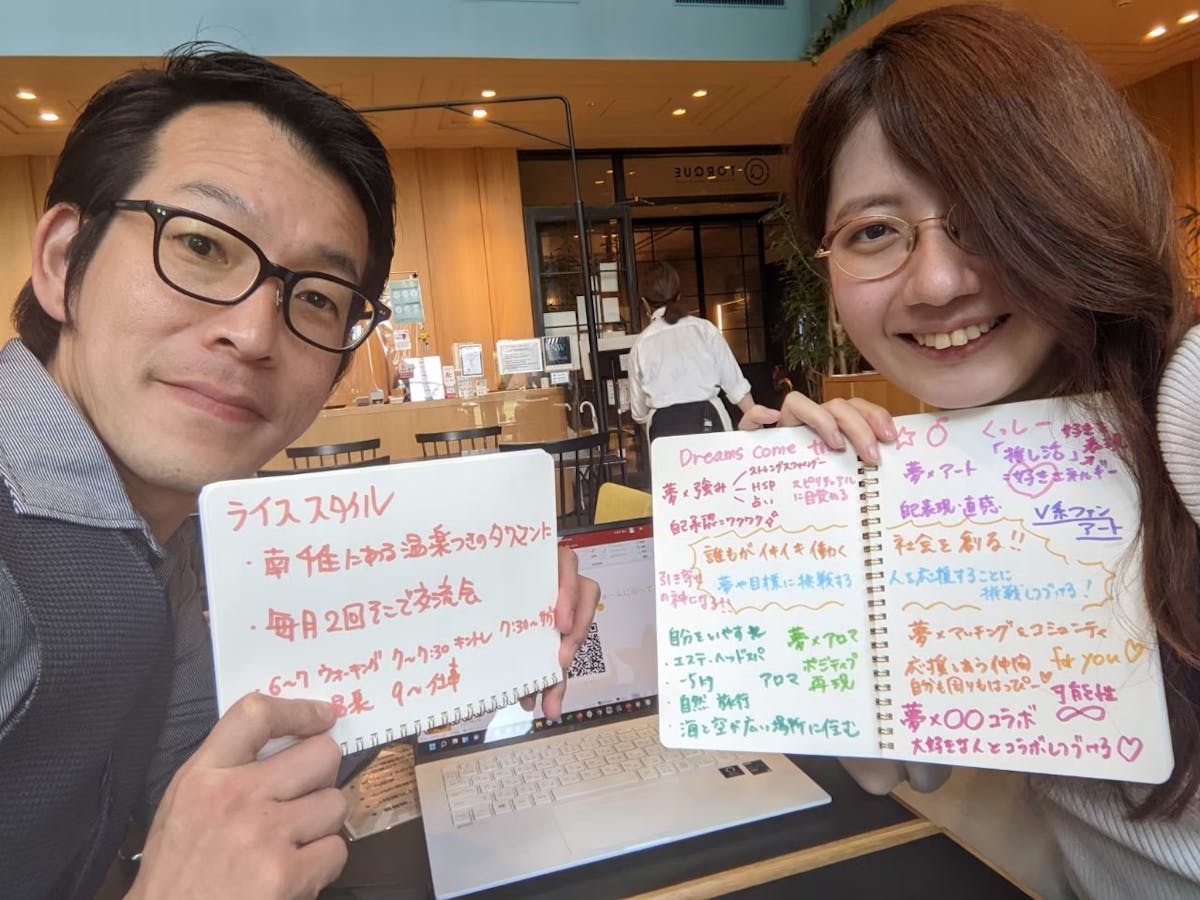 TORQUE
ライススタイル
・南千住にある温楽つきのタワマンに
・毎月2回そこで交流会
6〜7 ウォーキング 7〜7:30 キントレ 7:30〜
9〜仕事
Dreams Come
夢×強み
ストレングスファインダー
HSP
占い
スピリチュアルに目覚める
自己承認=ワクワク
誰もがイキイキ働く
夢や目標に挑戦する
引き寄せ
の神になる!!
自分をいやす
・エステ・ヘッドスパ
・-5kg
・自然 旅行
・海と空が広い場所に住む
夢×アロマ
ポジティブ
再現
アロマ
くっしー
夢×アート
「推し活」
好きを
表現
好きエネルギー
自己表現・直感
V系ファン
アート
社会を創る!!
人を応援することに
挑戦しつづける!
夢×マッチング&コミュニティ
応援しあう仲間
自分も周りもはっぴー♡
for you♡
可能性
∞
夢×〇〇コラボ
大好きな人とコラボしつづける♡